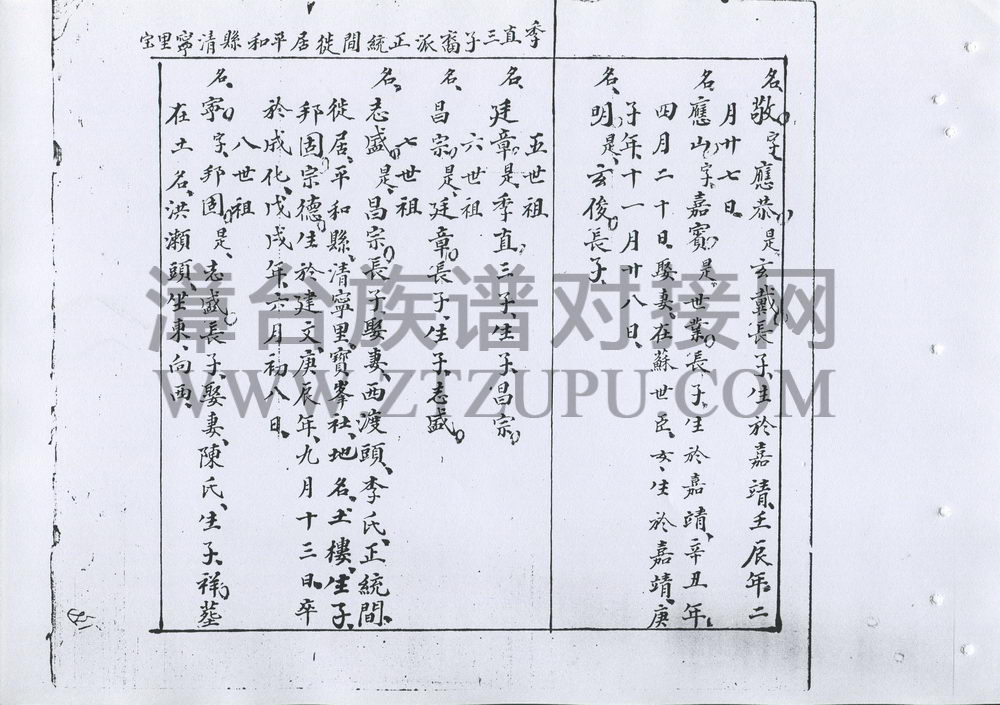 季直三子裔派正統間徙居平和縣清寧里宝
名敬字應恭是玄戴長子生於嘉靖壬辰年二
月廿七日
名應山字嘉賓是世業長子生於嘉靖辛丑年
四月二十日娶妻在蘇世臣女生於嘉靖庚
子年十一月廿八日
名明是玄俊長子
五世祖
名廷章是季直三子生子昌宗
六世祖
名昌宗是廷章長子生子志盛
七世祖
名志盛是昌宗長子娶妻西渡頭李氏正統間
徙居平和縣清寧里寶峯社地名土樓生子
邦固宗德生於建文庚辰年九月十三日卒
於成化戊戌年六月初八日
八世祖
名寧字邦固是志盛長子娶妻陳氏生子祥塟
在土名洪瀨頭坐東向西
漳台族谱对接网
WWW.ZTZUPU.COM